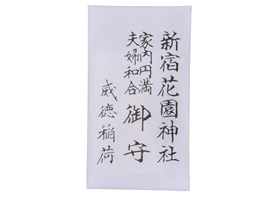 新宿花園神社
家内円満
夫婦和合
御守
威徳稲荷